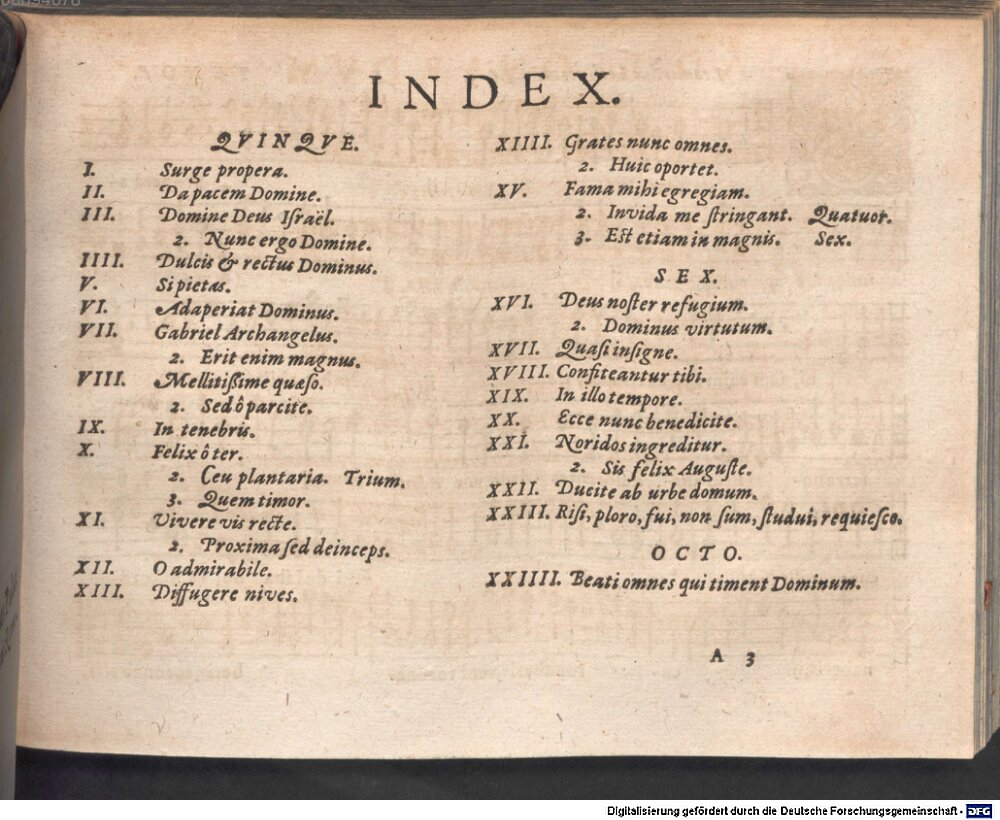 INDEX.
QVINQVE.
I. Surge propera.
II. Da pacem Domine.
III. Domine Deus Iſraël.
2. Nunc ergo Domine.
IIII. Dulcis & rectus Dominus.
V. Si pietas.
VI. Adaperiat Dominus.
VII. Gabriel Archangelus.
2. Erit enim magnus.
VIII. Mellitißime quæſo.
2. Sed ô parcite.
IX. In tenebris.
X. Felix ô ter.
2. Ceu plantaria. Trium.
3. Quem timor.
XI. Vivere vis recte.
2. Proxima ſed deinceps.
XII. O admirabile.
XIII. Diffugere nives.
XIIII. Grates nunc omnes.
2. Huic oportet.
XV. Fama mihi egregiam.
2. Invida me ſtringant. Quatuor.
3. Eſt etiam in magnis. Sex.
SEX.
XVI. Deus noſter refugium.
2. Dominus virtutum.
XVII. Quaſi inſigne.
XVIII. Confiteantur tibi.
XIX. In illo tempore.
XX. Ecce nunc benedicite.
XXI. Noridos ingreditur.
2. Sis felix Auguſte.
XXII. Ducite ab urbe domum.
XXIII. Riſi, ploro, fui, non ſum, ſtudui, requieſco.
OCTO.
XXIIII. Beati omnes qui timent Dominum.
A 3
Digitalisierung gefördert durch die Deutsche Forschungsgemeinschaft - DFG